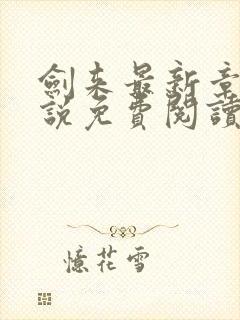 劍来最新章
説免費閱讀
憶花雪